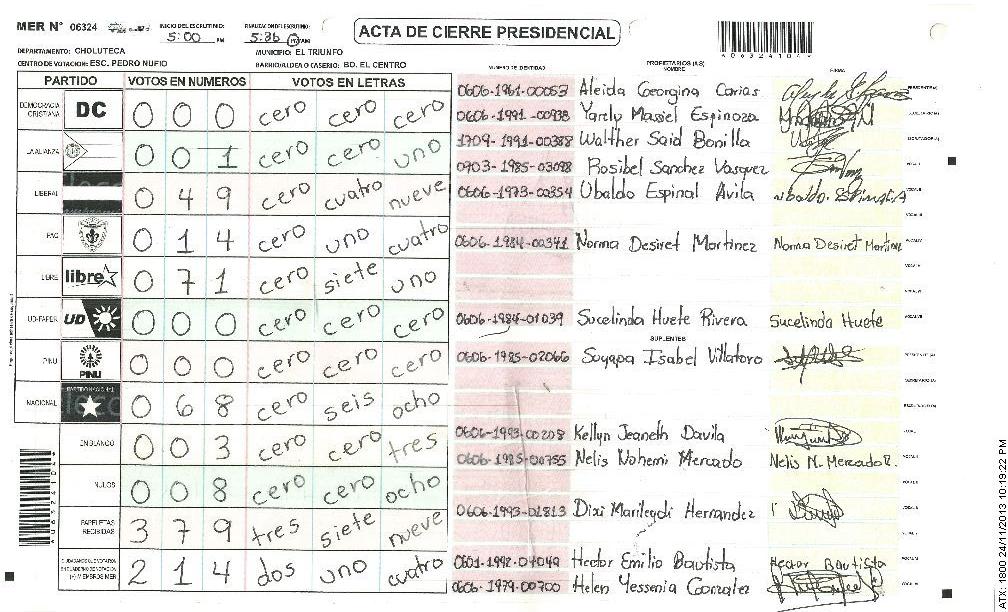 MER N° 06324
INICIO DEL ESCRUTINIO: 5:00 PM
FINALIZACION DEL ESCRUTINIO: 5:36
ACTA DE CIERRE PRESIDENCIAL
DEPARTAMENTO: CHOLUTECA
MUNICIPIO: EL TRIUNFO
CENTRO DE VOTACION: ESC. PEDRO NUFIO
BARRIO/ALDEA O CASERIO: BO. EL CENTRO
PARTIDO VOTOS EN NUMEROS VOTOS EN LETRAS
DEMOCRACIA CRISTIANA DC 0 0 0 cero cero cero
LA ALIANZA 0 0 1 cero cero uno
LIBERAL 0 4 9 cero cuatro nueve
PAC 0 1 4 cero uno cuatro
LIBRE libre 0 7 1 cero siete uno
UD-FAPER UD 0 0 0 cero cero cero
PINU PINU 0 0 0 cero cero cero
NACIONAL 0 6 8 cero seis ocho
EN BLANCO 0 0 3 cero cero tres
NULOS 0 0 8 cero cero ocho
PAPELETAS RECIBIDAS 3 7 9 tres siete nueve
2 1 4 dos uno cuatro
NUMERO DE IDENTIDAD
PROPIETARIOS (AS)
NOMBRE
FIRMA
0606-1961-00053 Aleida Georgina Carias
0606-1991-00938 Yarely Massiel Espinoza
1709-1991-00388 Walther Said Bonilla
0903-1985-03098 Rosibel Sanchez Vasquez
0606-1973-00354 Ubaldo Espinal Avila
0606-1984-00341 Norma Desiret Martinez Norma Desiret Martinez
0606-1984-01039 Sucelinda Huete Rivera Sucelinda Huete
SUPLENTES
0606-1985-02066 Suyapa Isabel Villatoro
0606-1993-00208 Kellyn Jeaneth Davila
0606-1985-00755 Nelis Nohemi Mercado Nelis N. Mercado R.
0606-1993-01813 Dixi Marileydi Hernandez
0601-1992-04049 Hector Emilio Bautista Hector Bautista
0606-1979-00700 Helen Yessenia Gonzalez
ATX-1800 24/11/2013 10:19:22 PM